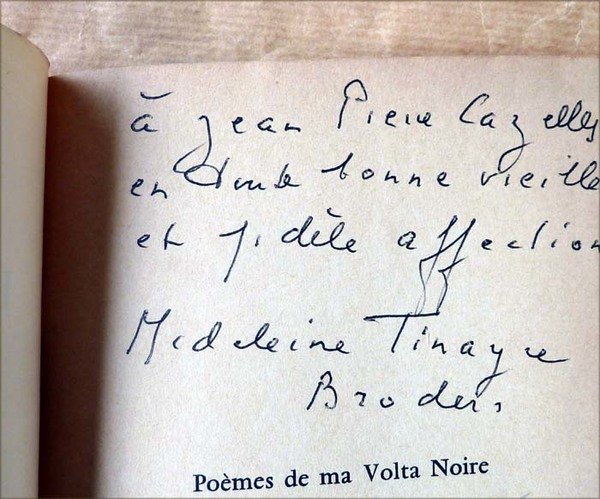 à Jean Pierre Cazelles
en toute bonne vieille
et fidèle affection
Madeleine Tinayre
Broders
Poèmes de ma Volta Noire